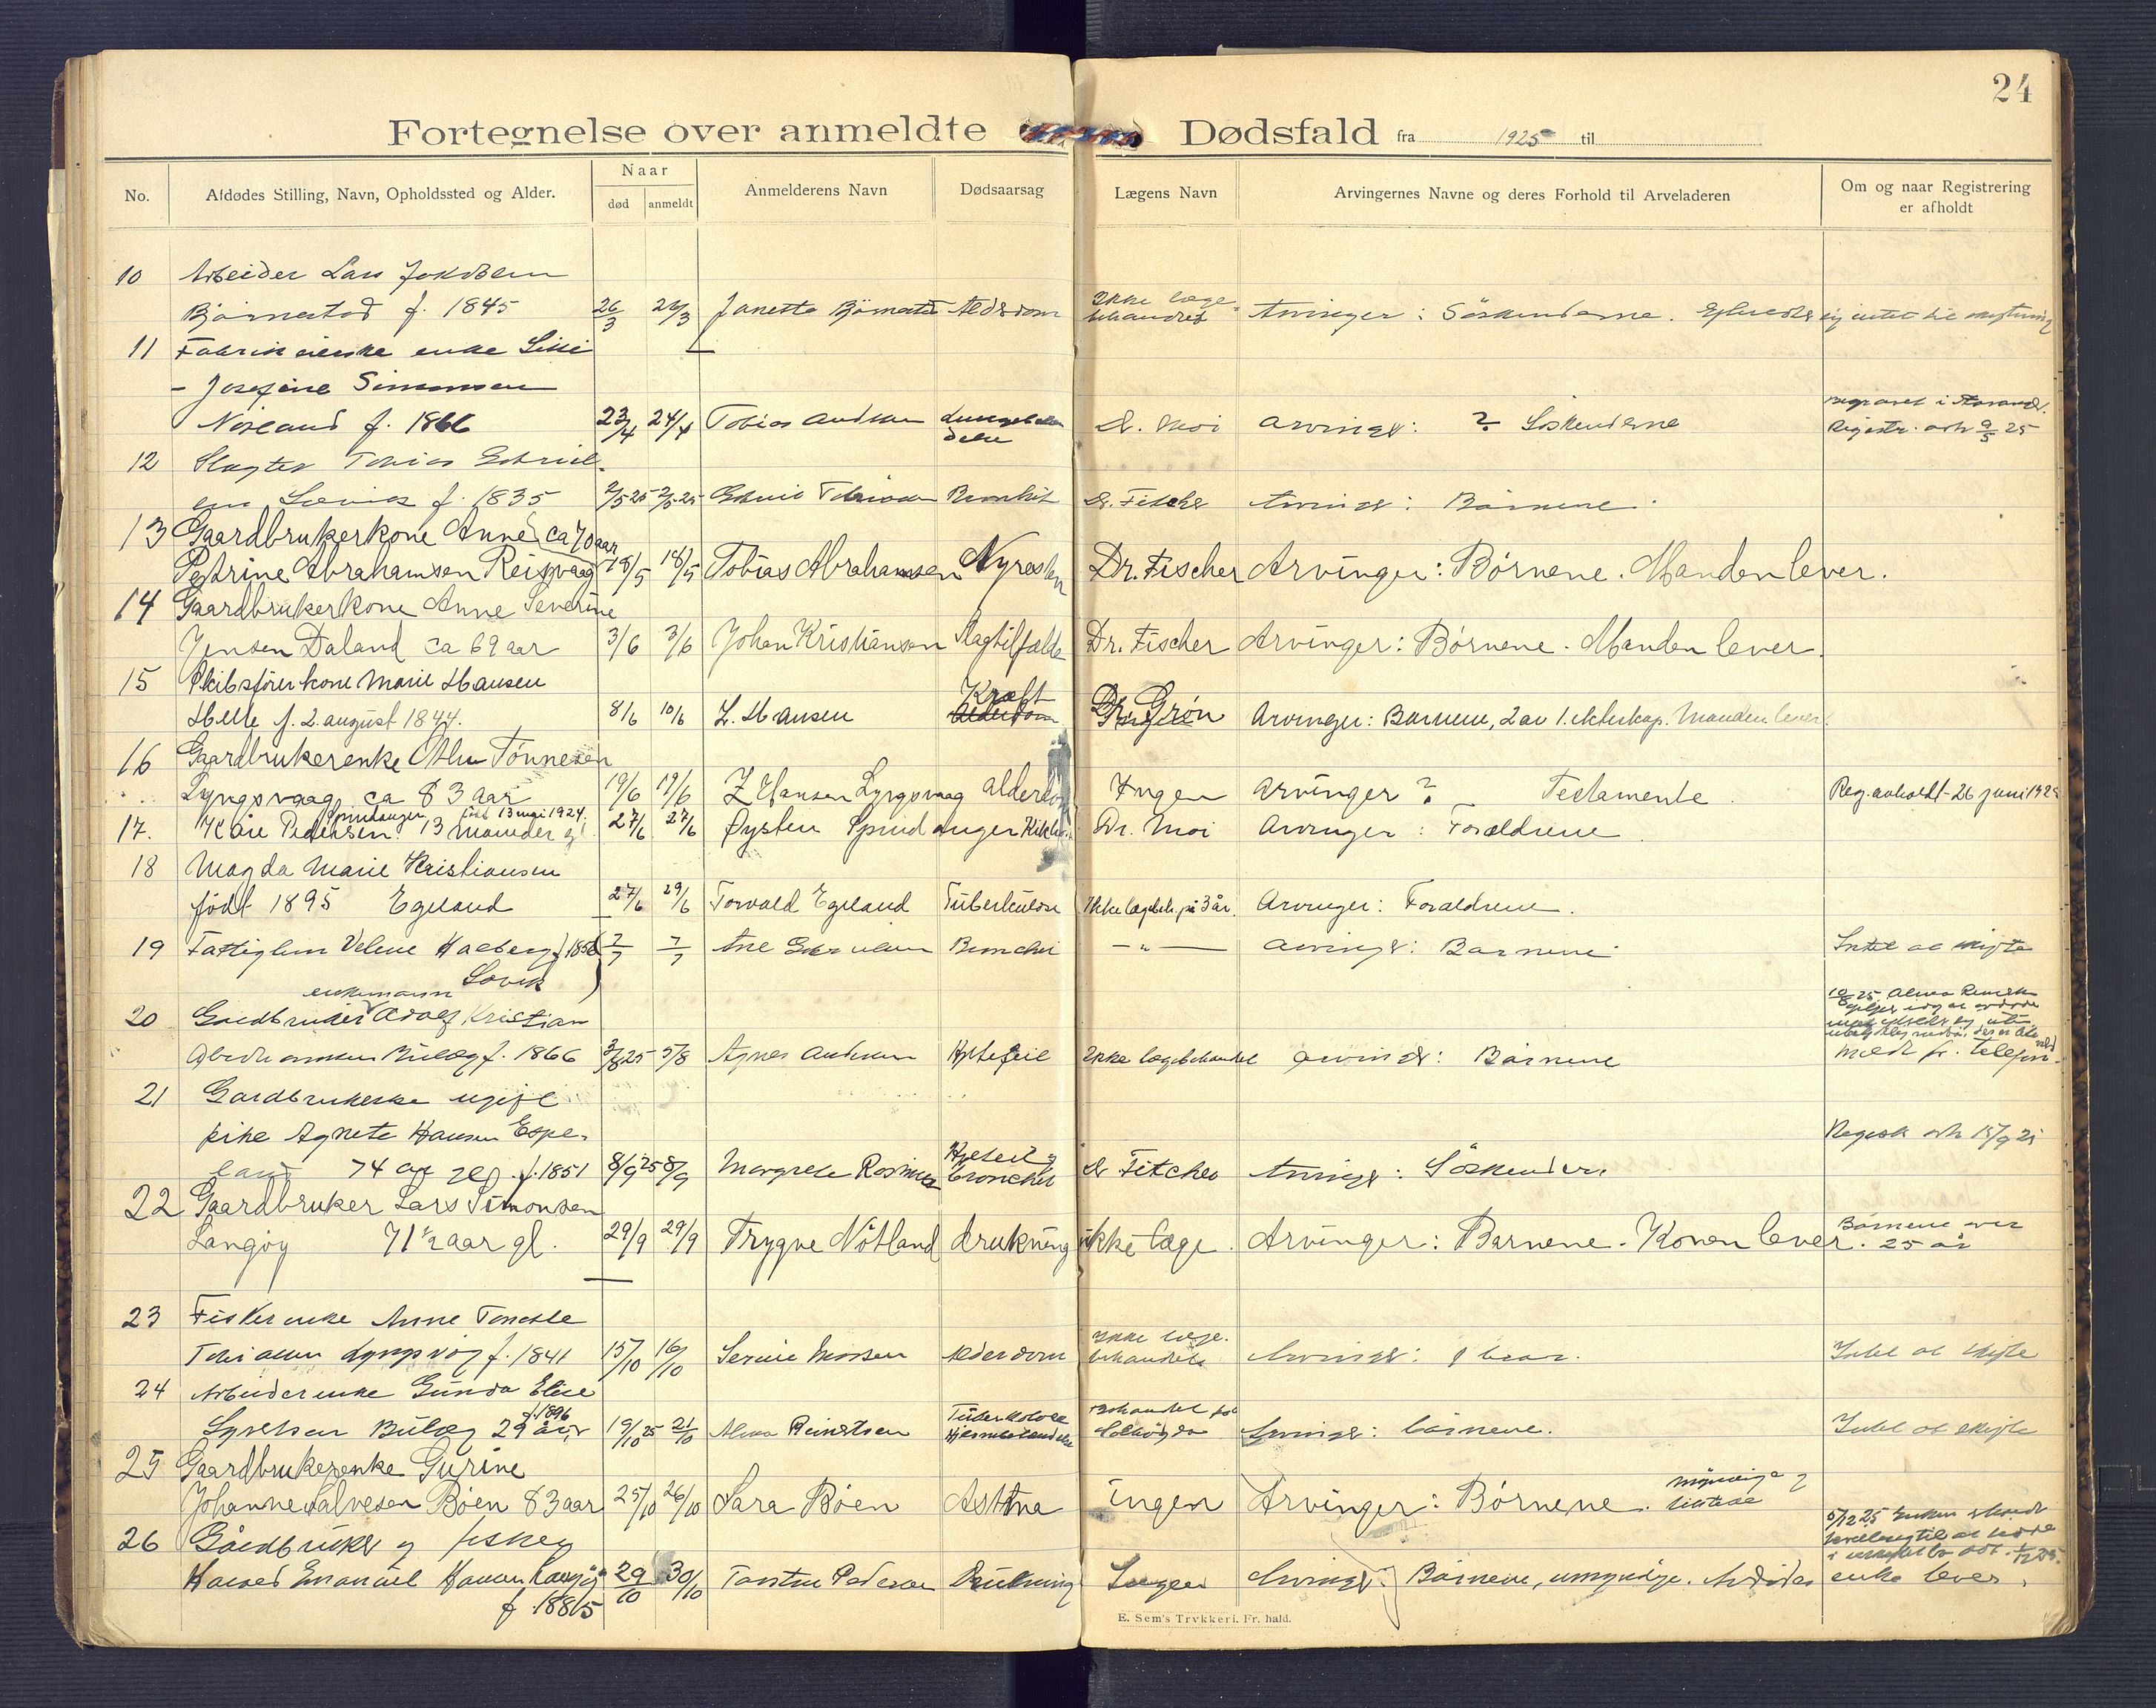 24
Fortegnelse over anmeldte Dødsfald fra 1925 til
No. Afdødes Stilling, Navn, Opholdssted og Alder. Naar død anmeldt Anmelderens Navn Dødsaarsag Lægens Navn Arvingernes Navne og deres Forhold til Arveladeren Om og naar Registrering er afholdt
10 Arbeider Lars Jakobsen
Bjørnestad f. 1845 26/3 26/3 Janette Bjørnestad Alderdom Ikke læge behandlet Arvinger: Söskenderne. Efterlod sig intet til skiftning
11 Fabrikeierske enke
- Josefine Simonsen
f. 1866 23/4 24/4 Tobias Andsen Dr. Moi Arvinger: ? Söskenderne Registr. avh 9/5 25
12 Slagter Tobias Gabriel-
sen f. 1835 2/5 25 2/5 25 Tobiassen Bronkit Dr. Fitcher Arvinger: Börnene.
13 Gaardbrukerkone Anne ca 70 aar
Petrine Abrahamsen Reisvaag 18/5 18/5 Tobias Abrahamsen Dr. Fischer Arvinger: Børnene. Manden lever.
14 Gaardbrukerkone Anne Severine
Jensen Daland ca 69 aar 3/6 3/6 Johan Kristiansen Slagtilfælde Dr. Fischer Arvinger: Børnene. Manden lever.
15 Skibsförerkone Marie Hansen
Helle f. 2. august 1844. 8/6 10/6 L. Hansen Kræft Alderdom Dr. Grøn Arvinger: Barnene, 2 av 1. ekteskap. Manden lever.
16 Gaardbrukerenke Tønnesen
Lyngsvaag ca 83 aar 19/6 19/6 Z Hansen Lyngsvaag alderdom Ingen Arvinger ? Testamente. Reg. avholdt 26 juni 1925
17. Kåre Pedersen Spindanger, født 13 mai 1924. 13 maaneder gl. 27/6 27/6 Øysten Spindanger Dr. Moi Arvinger: Forældrene.
18 Magda Marie Kristiansen
født 1895 Egeland 27/6 29/6 Torvald Egeland Tüberkülose Ikke lægbeh. på 3 år. Arvinger: Forældrene.
19 Fattiglem Velene f. 1856 7/7 7/7 Ane — " — Arvinger: Barnene. Intet at skifte
20 Gårdbruker enkemann Adolf Kristian
f. 1866 3/8 25 5/8 Agnes Andersen Hjertefeil Ikke lægebehandlet Arvinger: Börnene
21 Gardbrukerske ugift
pike Agnete Hansen Espe-
land 74 år gl. f. 1851 8/9 25 8/9 Margrete Hjertefeil og bronchit Dr Fitcher Arvinger: Söskender. Regist. avh 15/9 25
22 Gaardbruker Lars Simonsen
Langøy 71 1/2 aar gl. 29/9 29/9 Trygve Nötland drukning ikke læge. Arvinger: Barnene. Konen lever. Börnene over 25 år
23 Fiskerenke Anne Tomette
Tobiasen Lyngsvåg f. 1841 15/10 16/10 Serine Alderdom Ikke læge- behandlet Arvinger: Intet at skifte
24 Arbeiderenke Gunda Elise
Syvertsen 29 år f. 1896 19/10 25 21/10 Alma Reinertsen Tüberkulose Arvinger: börnene. Intet at skifte
25 Gaardbrukerenke Gurine
Johanne Salvesen Böen 83 aar 25/10 26/10 Sara Böen Asthma Ingen Arvinger: Börnene. myndige og
26 Gårdbruker og fisker
Emanuel Hansen Langöy f. 1885 29/10 30/10 Torsten Pedersen Drukning Ingen Arvinger: Börnene, umyndige. Avdödes enke lever.
E. Sem's Trykkeri. Fr. hald.